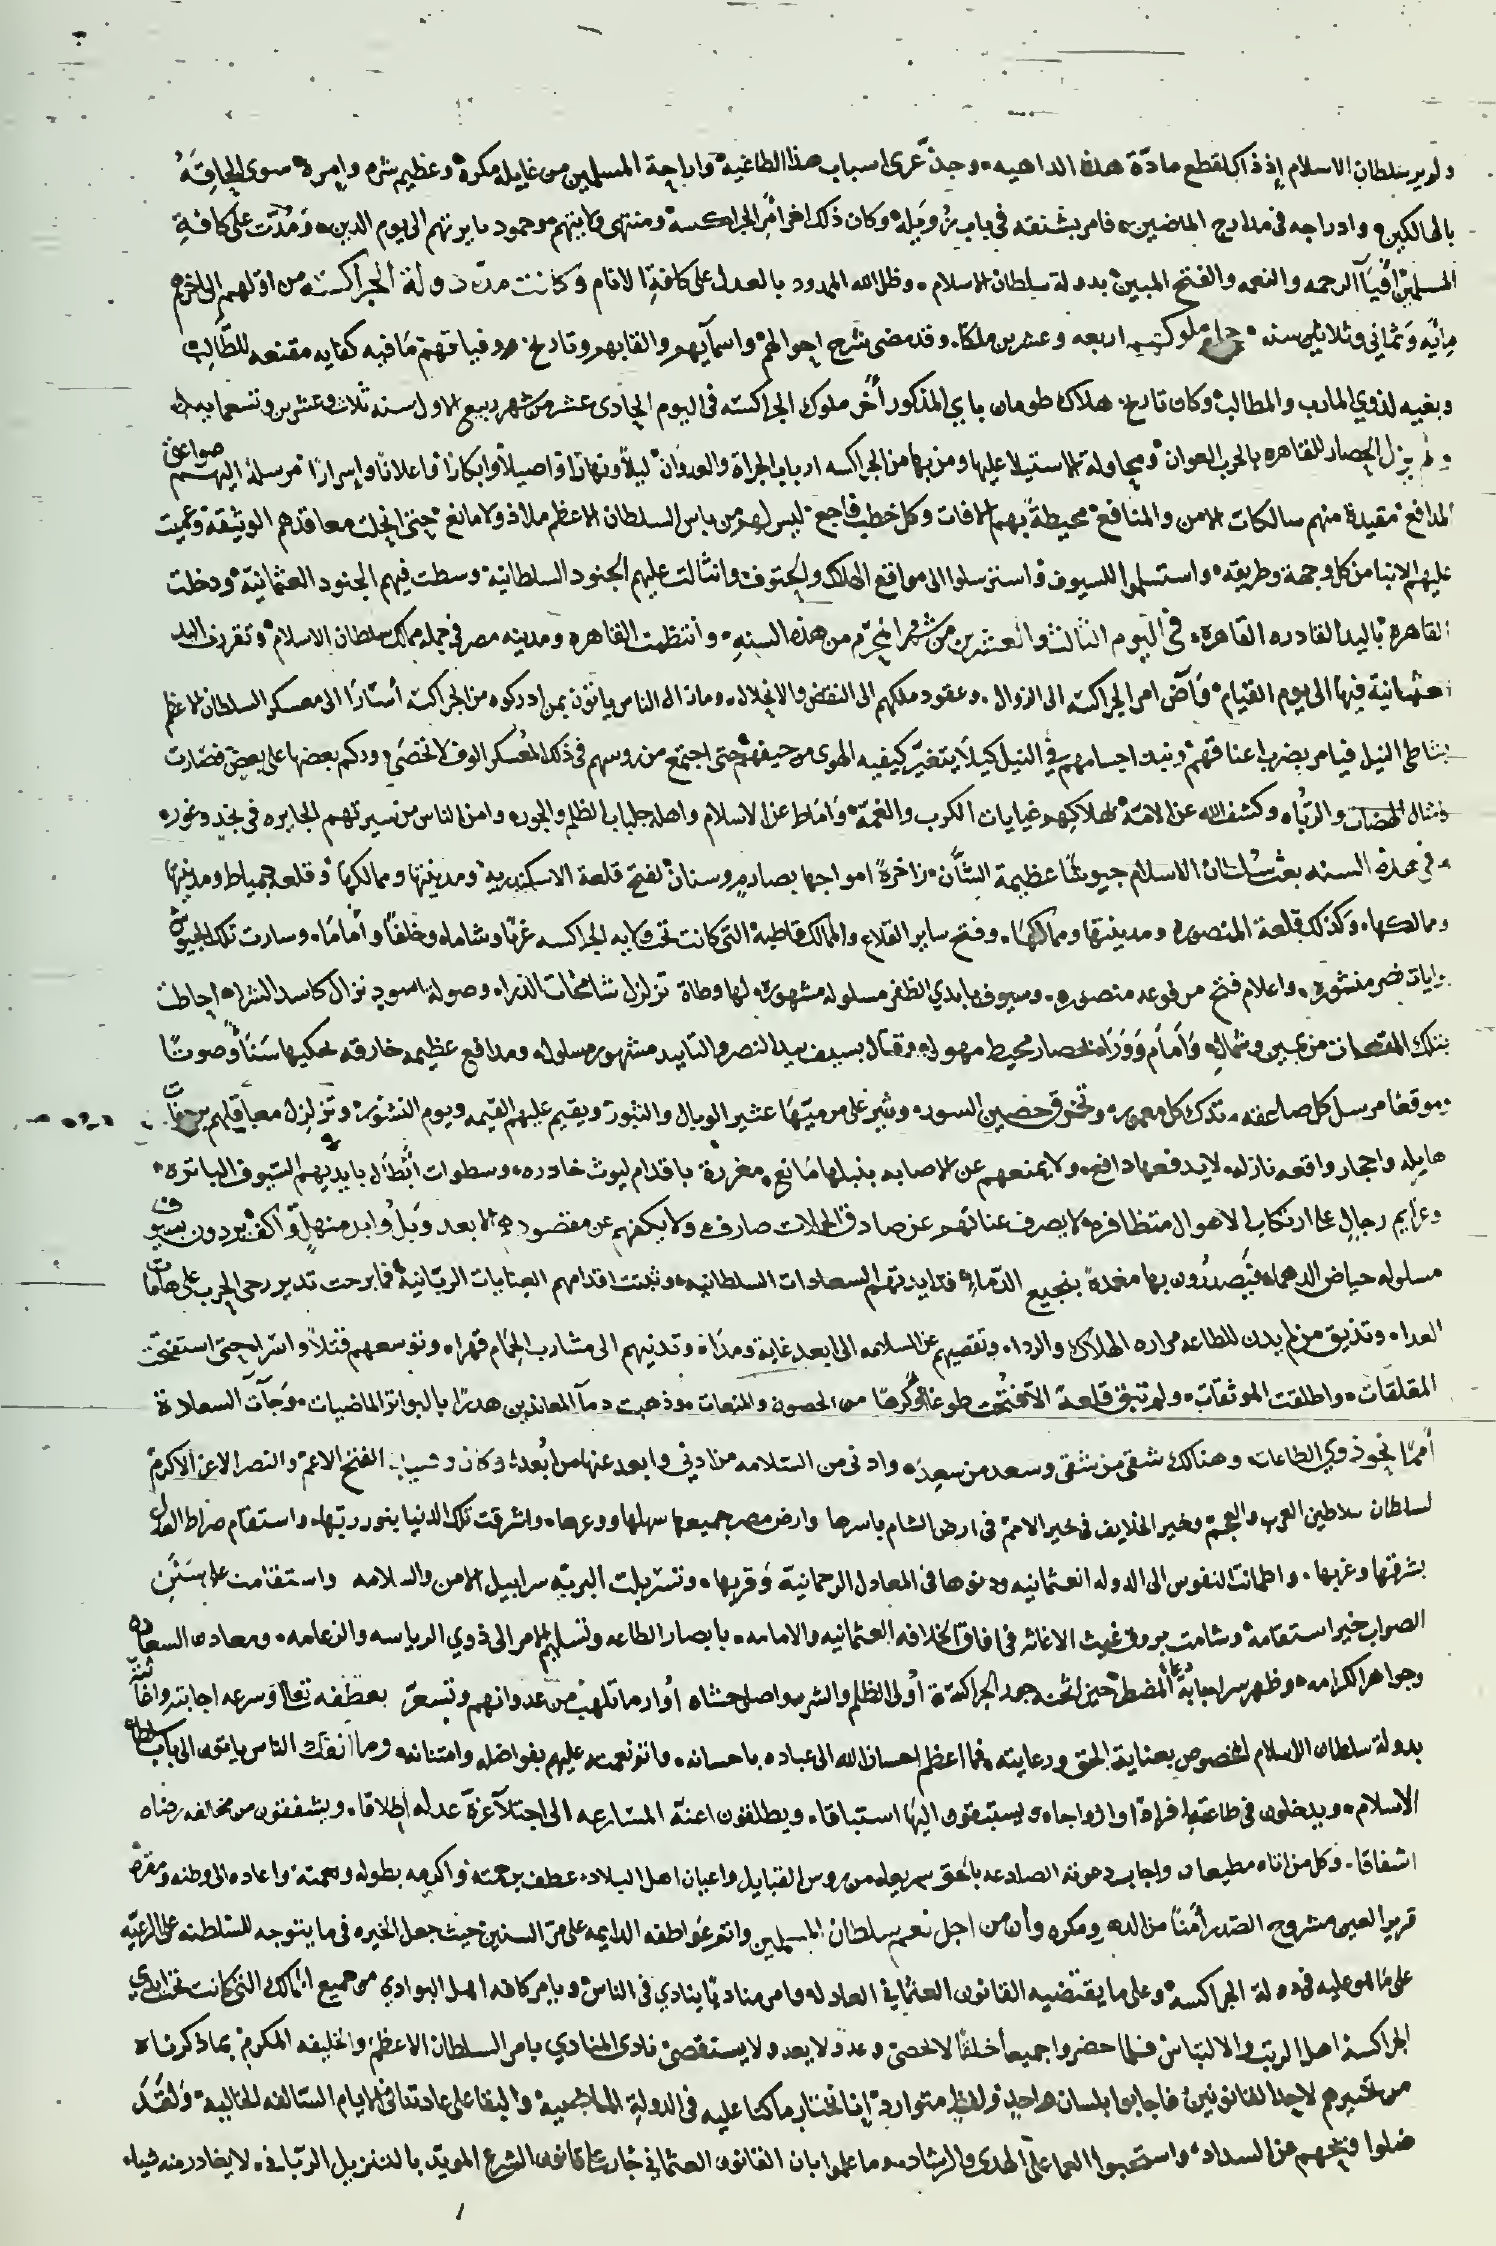 ولم ير سلطان الاسلام إذ ذاك لقطع مادّة هذه الداهيه، وجذّ عرى اسباب هذا الطاغية، واراحة المسلمين من غايلة مكره وعظيم شره وإمره سوى إلحاقه
بالهالكين، وادراجه في مدارج الماضين، فامر بشنقه في باب زُويله، وكان ذلك اخر امر الجراكسة ومنتهى ولايتهم وخمود نايرتهم الى يوم الدين، ومُدّت على كافةِ
المسلمين افيآ الرحمه والنعمه والفتح المبين بدولة سلطان الاسلام، وظل الله الممدود بالعدل على كافة الانام وكانت مدة دولة الجراكسة من اوّلهم الى اخرهم
مِائَيه وَثماني وثلاثين سنه، ملوكهم اربعه وعشرين ملكًا، وقد مضى شرح احوالهم واسمآيهم والقابهم وتاريخ وفياتهم مَا فيه كفايه مقنعه للطَّالب
وبغيه لذوي المارب والمطالب، وكان تاريخ هلاك طومان باي المذكور أخر ملوك الجراكسه في اليوم الحادى عشر من شهر ربيع الاول سنه ثلاث وعشرين وتسعمايه
ولم يزل الحصار للقاهره بالحرب العوان ومحاولة الاستيلا عليها ومن بها من الجراكسه ارباب الجراة والعدوان ليلًا ونهارًا واصيلًا وابكارًا واعلانًا وإسرارًا مرسلة اليهم صواعق
المدافع مقيدة منهم سالكات الامن والمنافع محيطةً بهم الافات وكل خطب فاجع ليس لهم من باس السلطان الاعظم ملاذ ولا مانع حتى انحلت معاقدهم الوثيقة وعميت
عليهم الانبا من كل وجهة وطريقه، واستسلموا للسيوف واسترسلوا الى مواقع الهلاك والحتوف وانثالت عليهم الجنود السلطانية وسطت فيهم الجنود العثمانيّة ودخلت
القاهره باليد القادره القاهرة، في اليوم الثالث والعشرين من شهر المحرّم من هذه السنه، وانتظمت القاهره ومدينه مصر في جمله ممالك سلطان الاسلام وتقررت اليد
العثمانية فيها الى يوم القيام وَآض امر الجراكسه الى الزوال، وعقود ملكهم الى النقض والانحلال، وما زال الناس ياتون بمن ادركوه من الجراكسه أسَارًا الى معسكر السلطان الاعظم
بشاطى النيل فيامر بضرب اعناقهم ونبذ اجسامهم في النيل كيلا يتغيّر كيفيه الهوى من جيفهم حتى اجتمع من روسهم في ذلك المُعسكر الوف لا تحصَى، وركم بعضها على بعض فصَارت
امثال الهضبات والرُبَاه وكشف الله عن الامّة بهلاكهم غيابات الكرب والغمّة وَامَاط عن الاسلام واهله جلباب الظلم والجور، وامن الناس من سيرتهم الجايره في نجد وغور،
وفي هذه السنه بعث سُلطان الاسلام جيوشًا عظيمة الشَّان، زاخرةً امواجها بصارمٍ وسنان لفتح قلعة الاسكندرية ومدينتها وممالكها وقلعة دمياط ومدينتها
وممالكها، وكذلك قلعة المنصوره ومدينتها وممالكها، وفتح ساير القلاع والممالك قاطبة التي كانت تحت ولايه الجراكسه غربًا وشاما، وخلفًا وأمامًا، وسارت تلك الجيوش
برايات نصر منشوره، واعلام فتح مرفوعه منصوره، وسيوف بايدي الظفر مسلوله مشهوره، لها وطاة تزلزل شامخات الذرا، وصولة اسود نزال كاسد الشرا، احاطت
بتلك من يمين وشمال، وَأمام وَوَرَاه بحصار محيط مهول، وقتال بسيف بيد النصر والتاييد مشهور مسلول، ومدافع عظيمه خارقه تحكيها سَنًا وصوتًا
وموقعًا مرسل كل صاعقه، تدك كل معمور، وتخرق حصين السور، وتثير على من ميّهَا عثير الوبال والثبور، ويقيم عليهم القيمه ويوم النشور، وتزلزل معاقلهم برجفات
هايله واحجار واقعه نازله، لا يدفعها دافع، ولا يمنعهم عن الاصابه بنبلها مَانع، مغررة باقدام ليوث خادره، وسطوات ابْطَال بايديهم السّيوف الباتره،
وعزايم رجالٍ على ارتكاب الاهوال متظافره، لا يصرف عناتهم عن صادق الحملات صارف، ولا يكفهم عن مقصودهم الابعد وَبلُ وابل منهل وَاكف، يردون بسيوف
مسلوله حياض الدهماء فيَصدرون بها مغمدةً بنجيع الدّماء، قد ايدتهم السعادات السلطانيه، وثبتت اقدامهم العنايات الربّانية فما برحت تدير رحى الحرب على هامات
العدا، وتذيق من لم يدن للطاعه مراره الهلاك والردا، وتقصيهم عن السلامه الى ابعد غاية ومدًا، وتدنيهم الى مشارب الحِمام قهرا، وتوسعهم قتلًا واسرا، حتى استفتحت
المقلقات، واطلقت الموثقات، ولم تبق قلعة الا فُتحت طوعًا وكُرهًا من الحصون والمنعات، وذهبت دمآ المعاندين هدرًا بالبواتر الماضيات، وجآت السعادة
أممًا نحو ذوي الطاعات، وهنالك شقى من شقى وسعد من سعد، وادنى من السّلامه من ادني وابعد عنها من أبْعد، وكان الفتح الاعم والنصر الاعز الاكرم
لسلطان سلاطين العرب والعجم وخير الخلايف في خير الامم في ارض الشام باسرها وارض مصر جميعها سهلها ووعرها، واشرقت تلك الدنيا بنور ربّها، واستقام صراط العدل
بشرقها وغربها، واطمانت النفوس الى الدوله العثمانيه ودنوها في المعادل الرحمانيّة وَقربها، وتسربلت البريّه سرابيل الامن والسلامه واستقامت على سَنَنِ
الصواب خير استقامه، وشامت بروق غيث الاغاثه في افاق الخلافه العثمانيه والامامه، بابصار الطاعه وتسليم الامر الى ذوي الرياسه والزعامه، ومعادن السعاده
وجواهر الكرامه، وظهر سر اجابة دُعا المضطر حين الجراكسة أولى الظلم والشر، واصلى حشاه أوار ما تلهب من عدوانهم وتسعرّ بعطفه تعالى وَسرعه اجابته واغاثته
بدولة سلطان الاسلام المخصوص بعناية الحق ورعايته، فما اعظم احسان الله الى عباده باحسانه، واتم نعمه عليهم بفواضله وامتنانه وما انفك الناس ياتون الى باب سلطان
الاسلام، ويدخلون في طاعته افرادًا وازواجا، ويستبقون اليهَا استباقا، ويطلقون اعنّة المسَارعه الى اجتلآ غرةّ عدله اطلاقا، ويشفقون من مخالفه رضاه
اشفاقا، وكل من اتاه مطيعا، واجاب دعوته الصادعه بالحق سريعا، من روس القبايل واعيان اهل البلاد، عطف برحمته واكرمه بطوله ونعمته، واعاده الى وطنه ومقرّه
قرير العين مشروح الصّدر أمنًا من الدهر ومكره، وان من اجل نعم سلطان المسلمين واتم عَواطفه الدايمه على مرّ السنين حيث جعل الخيره في ما يتوجه للسّلطنه على الرعيّه
على مَا هو عليه في دولة الجراكسه، وعلى ما يقتضيه القانون العثماني في العادله وامر مناديًا ينادي في الناس ويامر كافه اهل البوادي من جميع الممالك التي كانت تحت ايدي
الجراكسة اهل الريب والالتباس فلما حضروا جميعا خلقًا لا تحصى وعدد لا يعد ولا يستقصى نادى المنادي بامر السلطان الاعظم والخليفه المكرم بما ذكرناه
من تخييرهم لاحد القانونين فاجابوا بلسان واحدٍ ولفظ متوارد انا نختار ما كنا عليه في الدولة الماضية والبقا على عادتنا في الايام السّالفه الخالية وَلقَد
ضلوا في نهجهم عن السداد، واستحبوا العما على الهدى والرشاد، وما علموا بان القانون العثماني جَار على قانون الشرع المويّد بالتنزيل الربّاني، لا يغادر منه شيا،